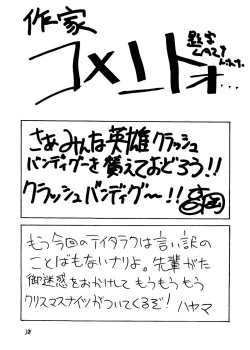 作家
コメント
さあみんな英雄クラッシュ
バンディグーを讃えておどろう!!
クラッシュバンディグ〜!!
もう今回のテイタラクは言い訳の
ことばもないナリよ。先輩がた
御迷惑をおかけして もうもうもう
クリスマスナイツがついてくるぞ! ハヤマ